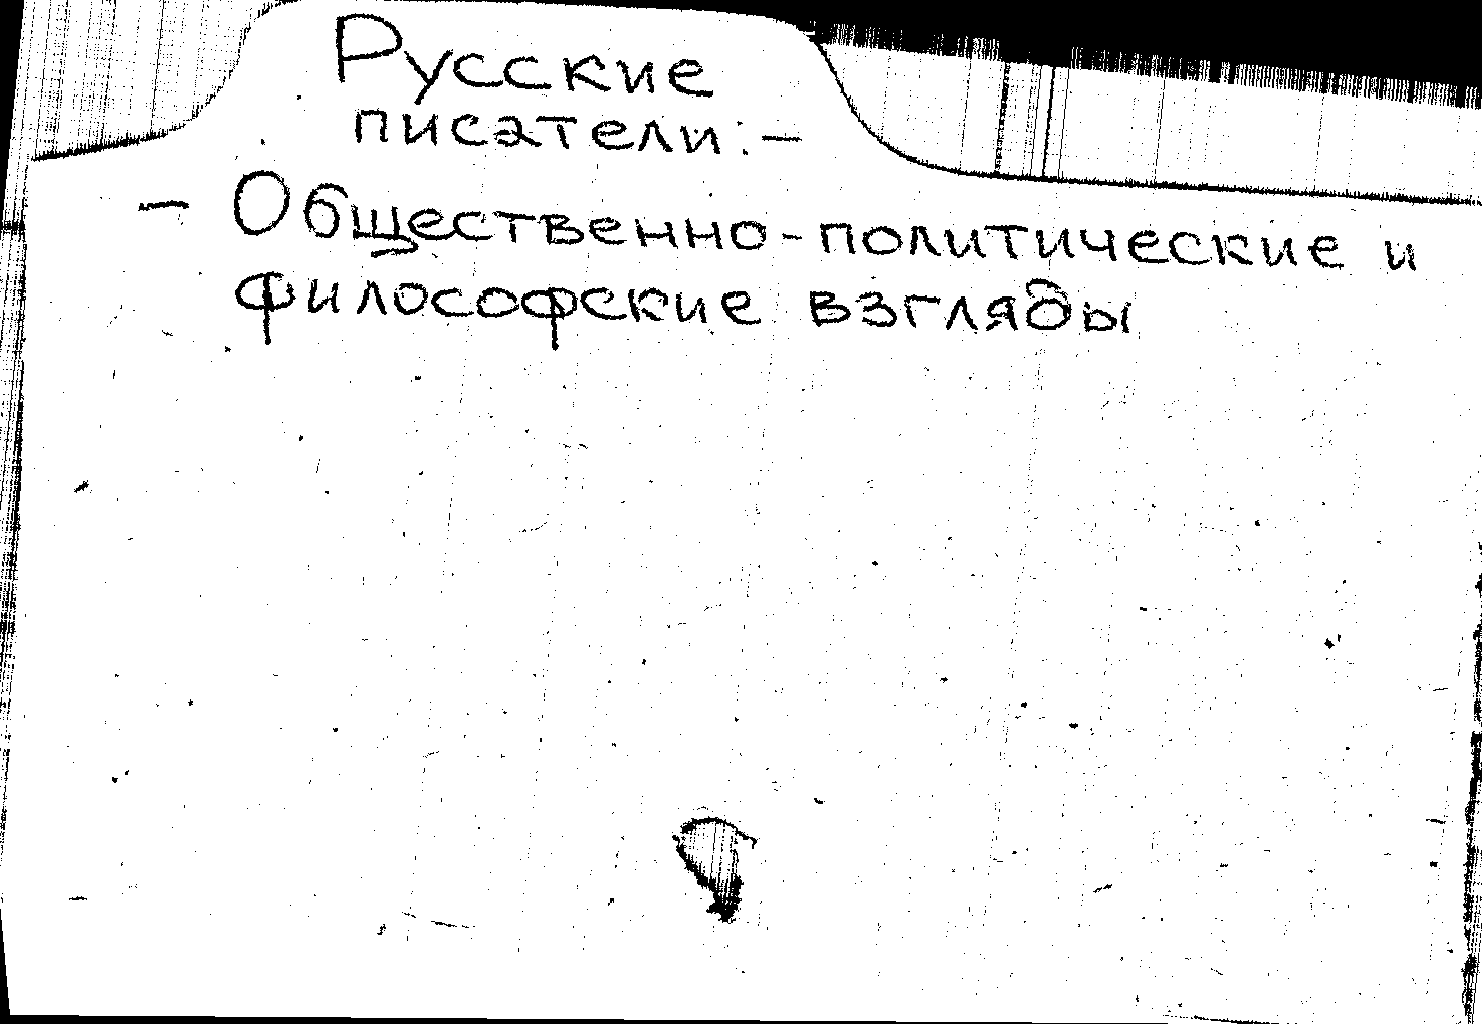 Русские
писатели: –
– Общественно-политические и
философские взгляды